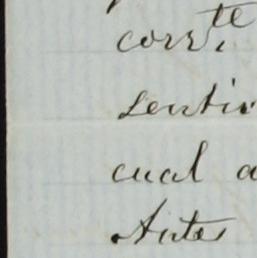 corrte,
sentir
cual a
Antes